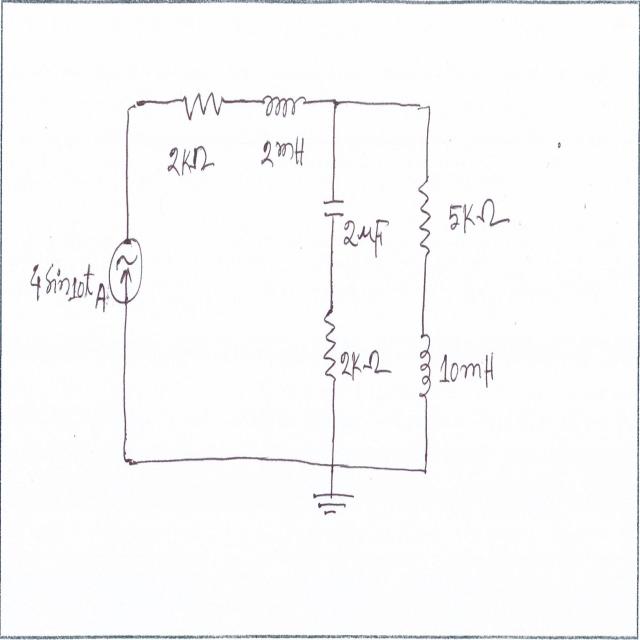 2KΩ
2mH
2μF
5KΩ
4 Sin10t A
2KΩ
10mH